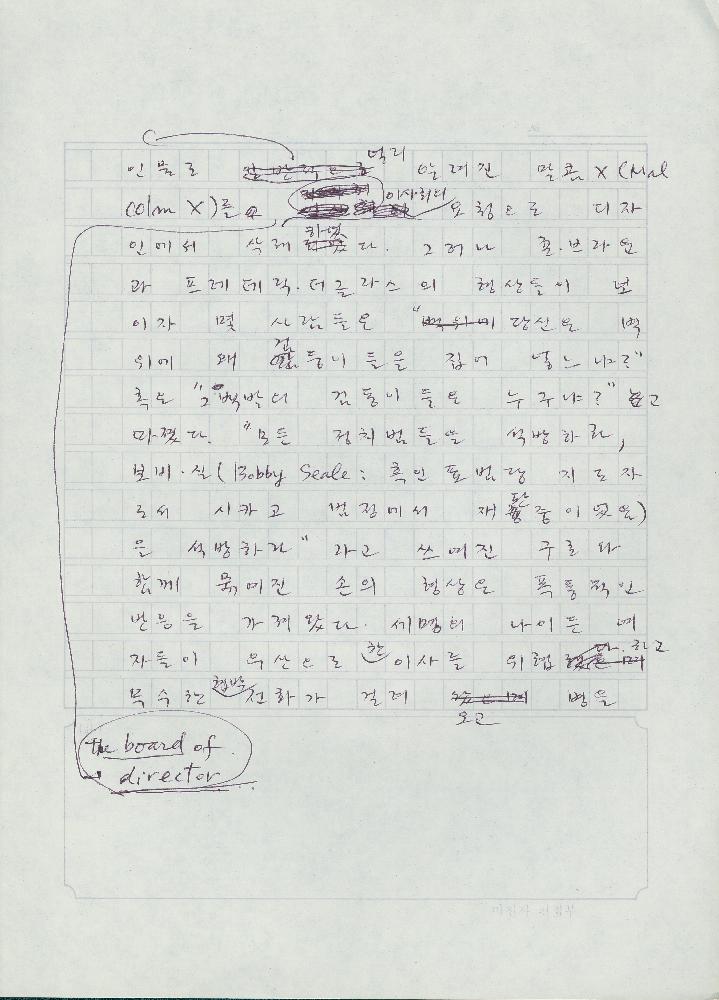 인물로 널리 알려진 말콤 X (Mal
colm X)를 이사회의 요청으로 디자
인에서 삭제 하였다. 그러나 죤·브라운
과 프레데릭·더글라스의 형상들이 보
이자 몇 사람들은 "당신은 벽
위에 왜 검둥이들을 집어 넣느냐?"
혹은 "그 백발의 검둥이들은 누구냐?" 고
따졌다. "모든 정치범들을 석방하라,
보비·실(Bobby Seale: 흑인 표범당 지도자
로서 시카고 법정에서 재판중이었음)
을 석방하라" 라고 쓰여진 구호와
함께 묶여진 손의 형상은 폭동적인
반응을 가져왔다. 세명의 나이든 여
자들이 우산으로 한 이사를 위협하고
무수한 협박 전화가 걸려 오고 벽을
the board of
director